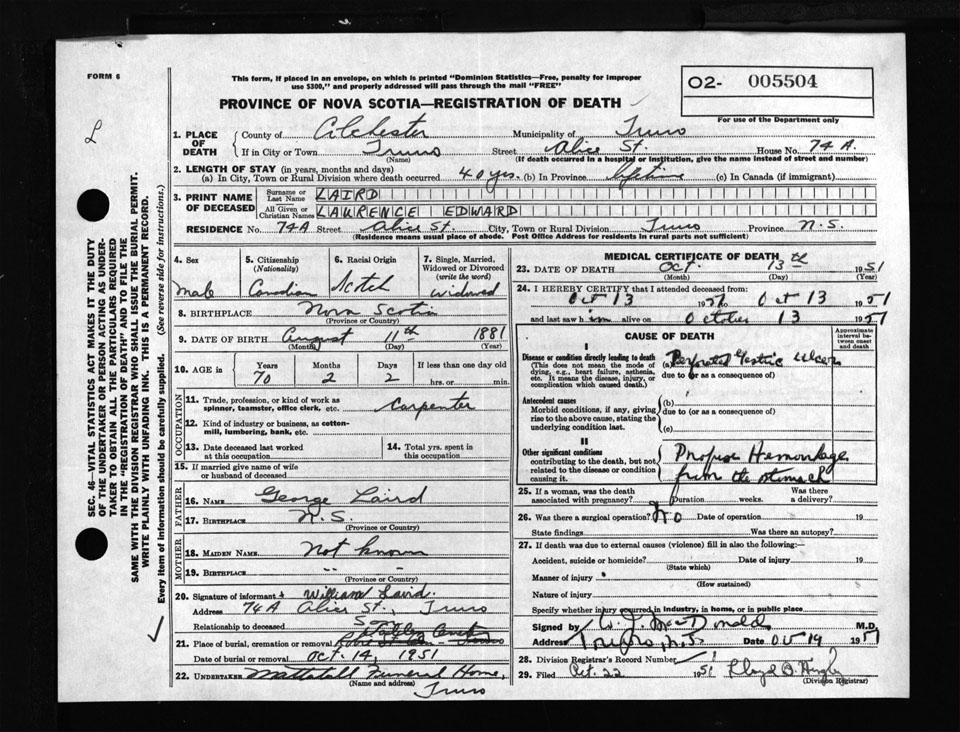 FORM 6
This form, if placed in an envelope, on which is printed "Dominion Statistics—Free, penalty for improper
use $300," and properly addressed will pass through the mail "FREE"
02- 005504
For use of the Department only
PROVINCE OF NOVA SCOTIA—REGISTRATION OF DEATH
L
1. PLACE OF DEATH
County of Colchester Municipality of Truro
If in City or Town Truro Street Alice St. House No. 74 A.
(Name) (If death occurred in a hospital or institution, give the name instead of street and number)
2. LENGTH OF STAY (in years, months and days)
(a) In City, Town or Rural Division where death occurred 40 yrs. (b) In Province lifetime (c) In Canada (if immigrant)
3. PRINT NAME OF DECEASED
Surname or Last Name LAIRD
All Given or Christian Names LAURENCE EDWARD
RESIDENCE No. 74A Street Alice St. City, Town or Rural Division Truro Province N.S.
(Residence means usual place of abode. Post Office Address for residents in rural parts not sufficient)
4. Sex
Male
5. Citizenship
(Nationality)
Canadian
6. Racial Origin
Scotch
7. Single, Married,
Widowed or Divorced
(write the word)
Widowed
8. BIRTHPLACE Nova Scotia
(Province or Country)
9. DATE OF BIRTH August 11th 1881
(Month) (Day) (Year)
10. AGE in
Years Months Days If less than one day old
70 2 2 hrs. or min.
OCCUPATION
11. Trade, profession, or kind of work as
spinner, teamster, office clerk, etc. Carpenter
12. Kind of industry or business, as cotton-
mill, lumbering, bank, etc.
13. Date deceased last worked
at this occupation
14. Total yrs. spent in
this occupation
15. If married give name of wife
or husband of deceased
FATHER
16. NAME George Laird
17. BIRTHPLACE N.S.
(Province or Country)
MOTHER
18. MAIDEN NAME Not known
19. BIRTHPLACE " "
(Province or Country)
20. Signature of informant William Laird
Address 74A Alice St., Truro
Relationship to deceased Son
21. Place of burial, cremation or removal
Date of burial or removal Oct. 14, 1951
22. UNDERTAKER Mattatall Funeral Home,
(Name and address) Truro
MEDICAL CERTIFICATE OF DEATH
23. DATE OF DEATH Oct. 13th 1951
(Month) (Day) (Year)
24. I HEREBY CERTIFY that I attended deceased from:
Oct 13 1951 to Oct 13 1951
and last saw him alive on October 13 1951
CAUSE OF DEATH
Approximate interval between onset and death
I
Disease or condition directly leading to death
(This does not mean the mode of
dying, e.g., heart failure, asthenia,
etc. It means the disease, injury, or
complication which caused death.)
(a) Perforated Gastric Ulcer
due to (or as a consequence of)
Antecedent causes
Morbid conditions, if any, giving
rise to the above cause, stating the
underlying condition last.
(b)
due to (or as a consequence of)
(c)
II
Other significant conditions
contributing to the death, but not
related to the disease or condition
causing it.
Profuse Hemorrhage
from the stomach
25. If a woman, was the death
associated with pregnancy? Duration weeks. Was there
a delivery?
26. Was there a surgical operation? No Date of operation 19
State findings Was there an autopsy?
27. If death was due to external causes (violence) fill in also the following:—
Accident, suicide or homicide? Date of injury 19
(State which)
Manner of injury
(How sustained)
Nature of injury
Specify whether injury occurred in industry, in home, or in public place
Signed by MacDonald M.D.
Address Truro N.S. Date Oct 19 1951
28. Division Registrar's Record Number
29. Filed Oct. 22 1951 Lloyd
(Division Registrar)
SEC. 46—VITAL STATISTICS ACT MAKES IT THE DUTY
OF THE UNDERTAKER OR PERSON ACTING AS UNDER-
TAKER TO OBTAIN ALL THE PARTICULARS REQUIRED
IN THE "REGISTRATION OF DEATH" AND TO FILE THE
SAME WITH THE DIVISION REGISTRAR WHO SHALL ISSUE THE BURIAL PERMIT.
WRITE PLAINLY WITH UNFADING INK. THIS IS A PERMANENT RECORD.
Every item of information should be carefully supplied. (See reverse side for instructions.)